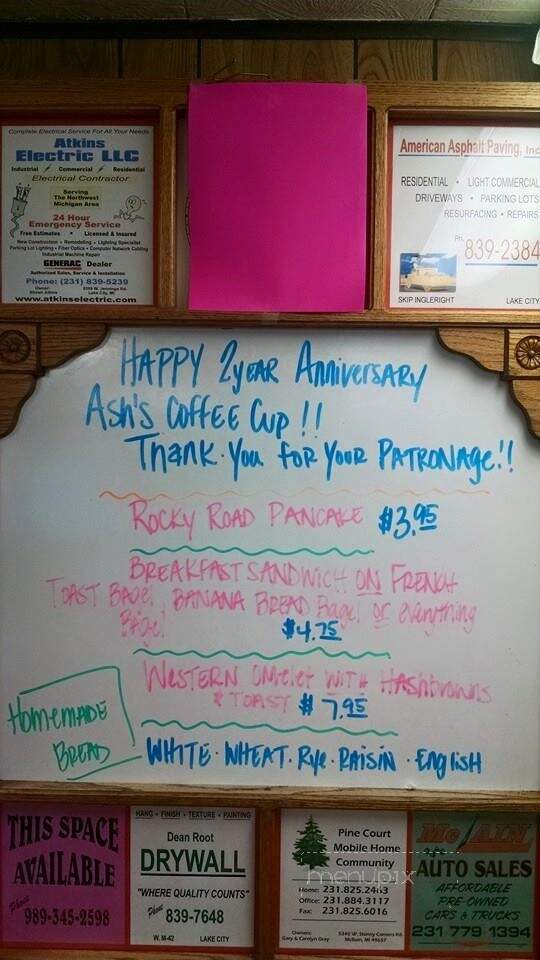 Complete Electrical Service For All Your Needs
Atkins
Electric LLC
Industrial Commercial Residential
Electrical Contractor
Serving
The Northwest
Michigan Area
24 Hour
Emergency Service
Free Estimates • Licensed & Insured
New Construction • Remodeling • Lighting Specialist
Parking Lot Lighting • Fiber Optics • Computer Network Cabling
Industrial Machine Repair
GENERAC Dealer
Authorized Sales, Service & Installation
Phone: (231) 839-5239
Owner:
Lake City, MI
www.atkinselectric.com
American Asphalt Paving, Inc
RESIDENTIAL • LIGHT COMMERCIAL
DRIVEWAYS • PARKING LOTS
RESURFACING • REPAIRS
Ph: 839-2384
SKIP INGLERIGHT LAKE CITY
HAPPY 2 yEAR ANNiVERSARY
ASH'S COFFEE CUP !!
THANK YOU FOR YOUR PATRONAGE!!
ROCKY ROAD PANCAKE $3.95
BREAKFAST SANDWICH ON FRENCH
TOAST BAGEl, BANANA BREAD BAgel or everything
BAgel $4.75
WESTERN OMelet WITH HASHbrowns
& TOAST $7.95
HOMEMADE
BREAD
WHITE · WHEAT · Rye · RAISIN · ENgliSH
THIS SPACE
AVAILABLE
Phone
989-345-2598
HANG • FINISH • TEXTURE • PAINTING
Dean Root
DRYWALL
"WHERE QUALITY COUNTS"
Phone 839-7648
W. M-42 LAKE CITY
Pine Court
Mobile Home
Community
Home: 231.825.2463
Office: 231.884.3117
Fax: 231.825.6016
Owners:
Gary & Carolyn Gray
McBain, MI 49657
menupix
McBAIN
AUTO SALES
AFFORDABLE
PRE-OWNED
CARS & TRUCKS
231 779-1394